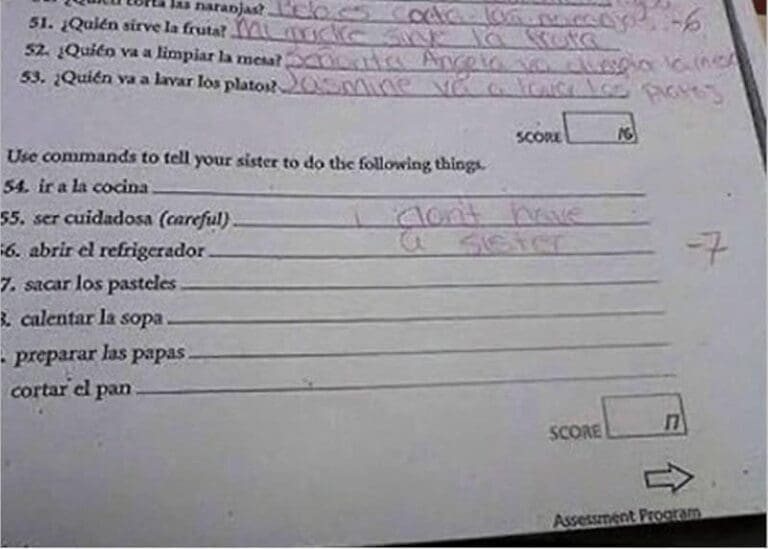 las naranjas? las -6
51. ¿Quién sirve la fruta? Mi madre sirve la fruta
52. ¿Quién va a limpiar la mesa? Señorita Angela va a la
53. ¿Quién va a lavar los platos? Jasmine va a lavar los platos
SCORE 16
Use commands to tell your sister to do the following things.
54. ir a la cocina
55. ser cuidadosa (careful) i don't have
56. abrir el refrigerador a sister -7
7. sacar los pasteles
8. calentar la sopa
. preparar las papas
cortar el pan
SCORE 17
Assessment Program